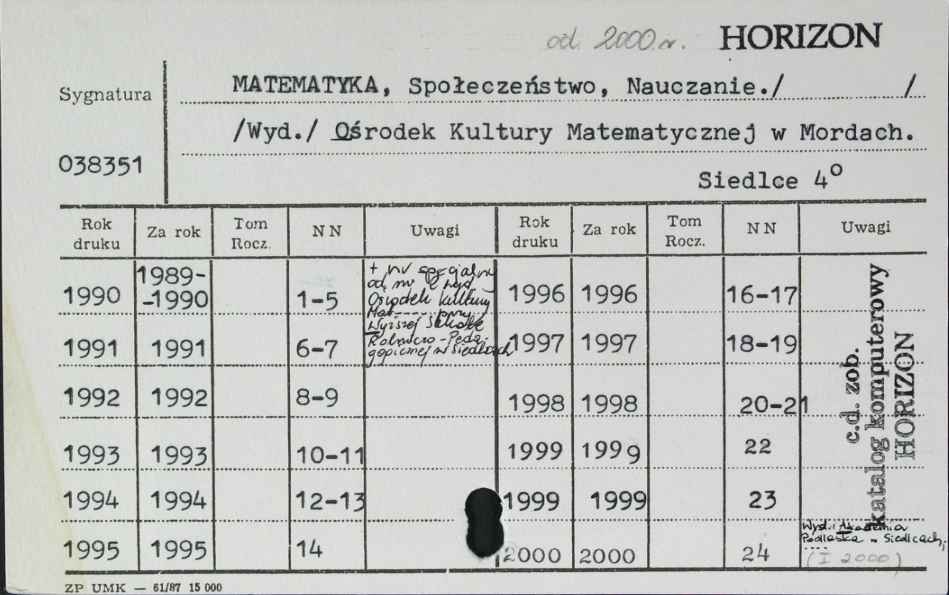 od. 2000 r. HORIZON
Sygnatura
MATEMATYKA, Społeczeństwo, Nauczanie./ /
/Wyd./ Ośrodek Kultury Matematycznej w Mordach.
038351
Siedlce 4o
Rok druku Za rok Tom Rocz. NN Uwagi Rok druku Za rok Tom Rocz. NN Uwagi
1990 1989-
-1990 1-5 1996 1996 16-17
+ nr specjalny
od nr wyd.
Ośrodek Kultury
Mat---- przy
Wyższej Szkole
Rolniczo-Peda
gogicznej w Siedlcach
1991 1991 6-7 1997 1997 18-19
1992 1992 8-9 1998 1998 20-21
1993 1993 10-11 1999 1999 22
1994 1994 12-13 1999 1999 23
1995 1995 14 2000 2000 24
Wyd.: Akademia
Podlaska w Siedlcach;
(I 2000)
c.d. zob.
katalog komputerowy
HORIZON
ZP UMK — 61/87 15 000